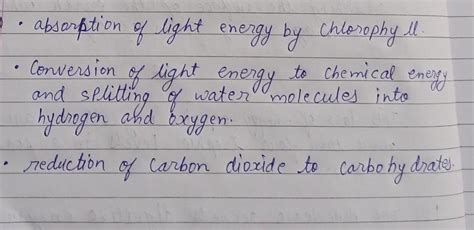 • absorption of light energy by chlorophyll.
• Conversion of light energy to chemical energy
and splitting of water molecules into
hydrogen and oxygen.
• reduction of carbon dioxide to carbohydrates.